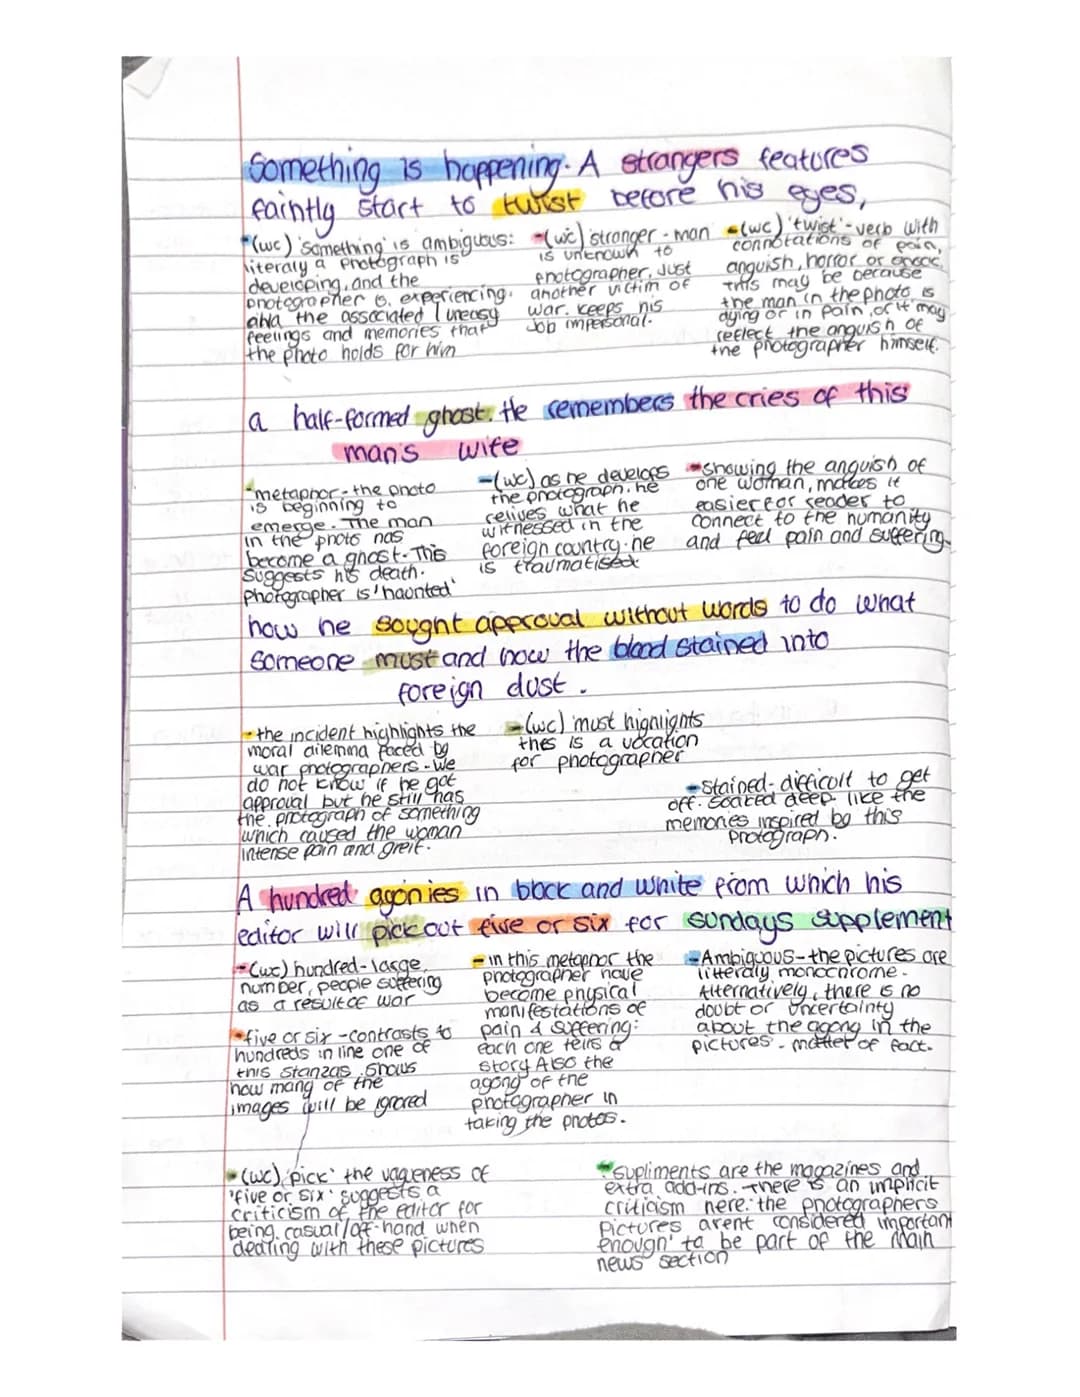 Something is happening. A strangers features
faintly start to twist before his eyes,
(wc) 'something' is ambiguous:
literaly a photograph is
developing, and the
photographer is experiencing.
and the associated / uneasy
feelings and memories that
the photo holds for him
(wc) stranger - man
is unknown to
photographer, Just
another victim of
war. keeps his
Job impersonal.
(wc) 'twist' - verb with
connotations of pain,
anguish, horror or
This may be because
the man in the photo is
dying or in pain, or it may
reflect the anguish of
the photographer himself.
a half-formed ghost. He remembers the cries of this
man's wife
metaphor - the photo
is beginning to
emerge. The man
in the photo has
become a ghost - This
Suggests his death.
photographer is 'haunted'
- (wc) as he develops
the photograph. he
relives what he
witnessed in the
foreign country. he
is traumatised.
- Showing the anguish of
one woman, makes it
easier for reader to
connect to the humanity
and feel pain and suffering.
how he sought approval without words to do what
someone must and how the blood stained into
foreign dust.
- the incident highlights the
moral dilemma faced by
war photographers - We
do not know if he got
approval but he still has
the photograph of something
which caused the woman
intense pain and greif.
- (wc) must highlights
this is a vocation
for photographer
- Stained - difficult to get
off. Soaked deep like the
memories inspired by this
photograph.
A hundred agonies in black and white from which his
editor will pick out five or six for sundays supplement
- (wc) hundred - large
number, people suffering
as a result of war
five or six - contrasts to
hundreds in line one of
this stanzas. Shows
how many of the
images will be ignored
- in this metaphor the
photographer have
become physical
manifestations of
pain & suffering:
each one tells a
story Also the
agony of the
photographer in
taking the photos.
- Ambiguous - the pictures are
litteraly monochrome.
Alternatively, there is no
doubt or uncertainty
about the agony in the
pictures - matter of fact.
(wc) 'pick' the vagueness of
'five or six' suggests a
criticism of the editor for
being casual/off-hand when
dealing with these pictures
supliments are the magazines and
extra add-ins. There is an implicit
criticism here: the photographers
pictures arent considered important
enough' to be part of the main
news section